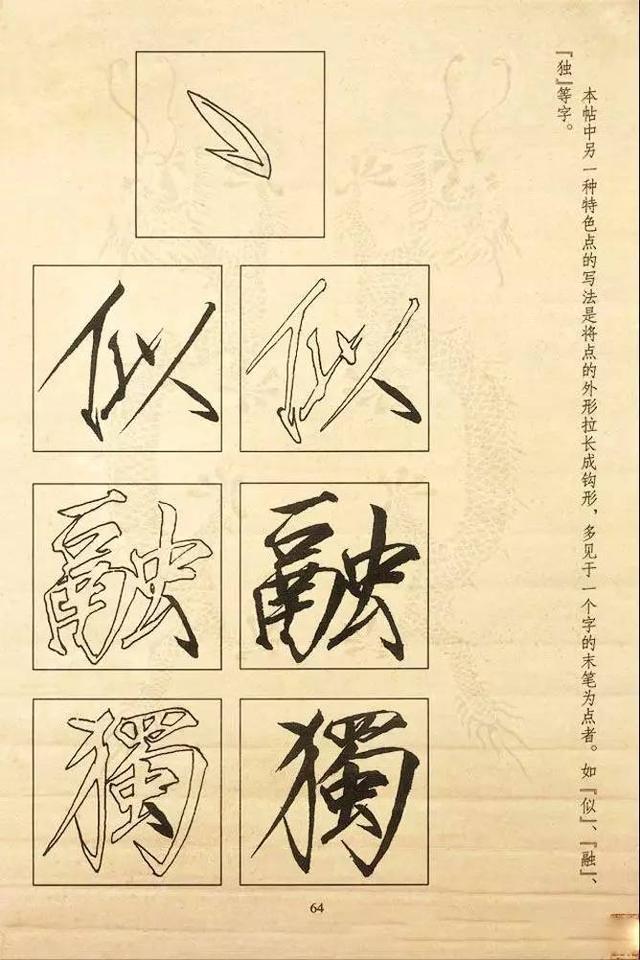 本帖中另一种特色点的写法是将点的外形拉长成钩形，多见于一个字的末笔为点者。如『似』、『融』、
『独』等字。
似 似
融 融
獨 獨
64